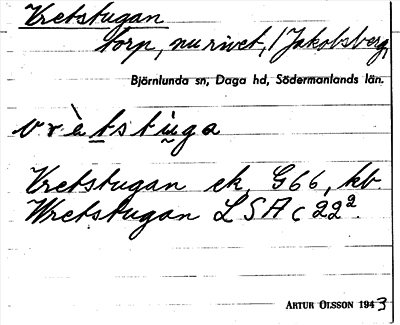 Vretstugan
torp, nu rivet, / Jakobsberg,
Björnlunda sn, Daga hd, Södermanlands län.
vrè̀tstu̇ga
Vretstugan ek. G66, kb.
Wretstugan LSA C 22².
ARTUR OLSSON 1943